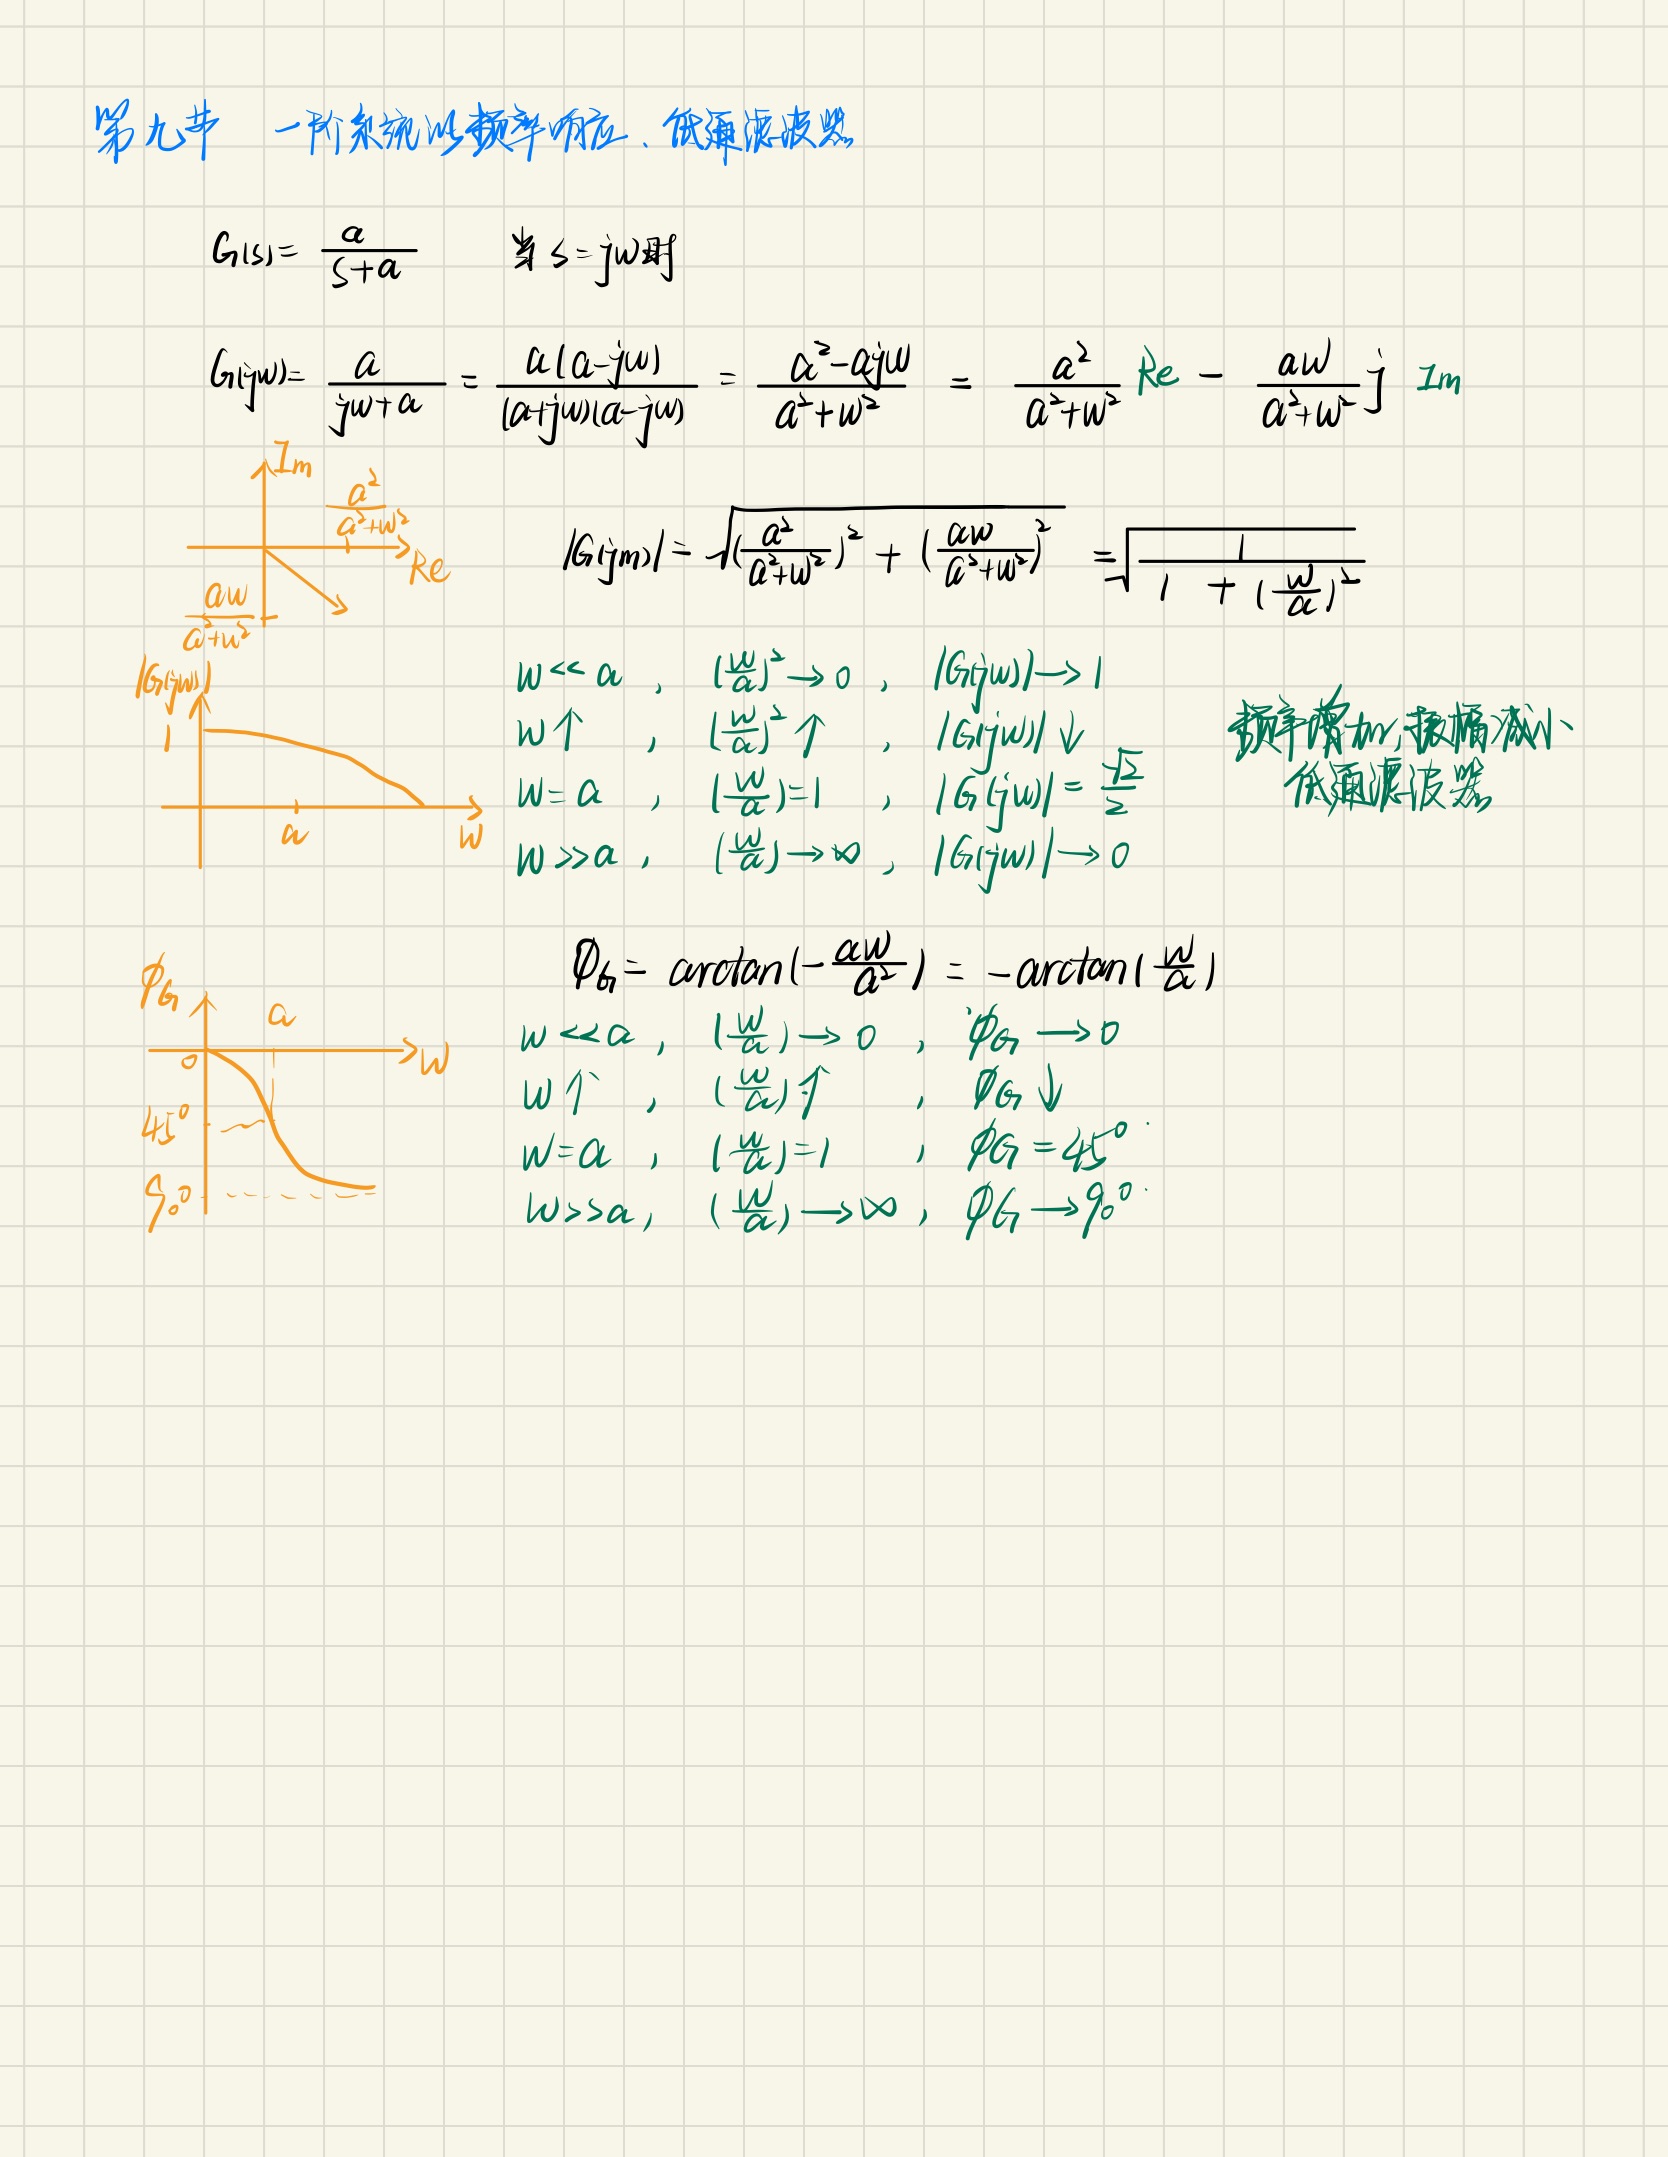 第九节 一阶系统的频率响应、低通滤波器
G(s) = a/(s+a) 当 s = jw时
G(jw) = a/(jw+a) = a(a-jw)/((a+jw)(a-jw)) = (a²-ajw)/(a²+w²) = a²/(a²+w²) Re - aw/(a²+w²) j Im
Im
a²/(a²+w²)
Re
aw/(a²+w²)
|G(jm)| = √((a²/(a²+w²))² + (aw/(a²+w²))²) = √(1/(1 + (w/a)²))
|G(jw)|
1
a
w
w << a , (w/a)² → 0 , |G(jw)| → 1
w↑ , (w/a)² ↑ , |G(jw)| ↓
w = a , (w/a) = 1 , |G(jw)| = √2/2
w >> a , (w/a) → ∞ , |G(jw)| → 0
频率增加,振幅减小
低通滤波器
ϕG = arctan(-aw/a²) = -arctan(w/a)
ϕG
a
0
w
45°
90°
w << a , (w/a) → 0 , ϕG → 0
w↑ , (w/a)↑ , ϕG ↓
w = a , (w/a) = 1 , ϕG = 45°
w >> a , (w/a) → ∞ , ϕG → 90°